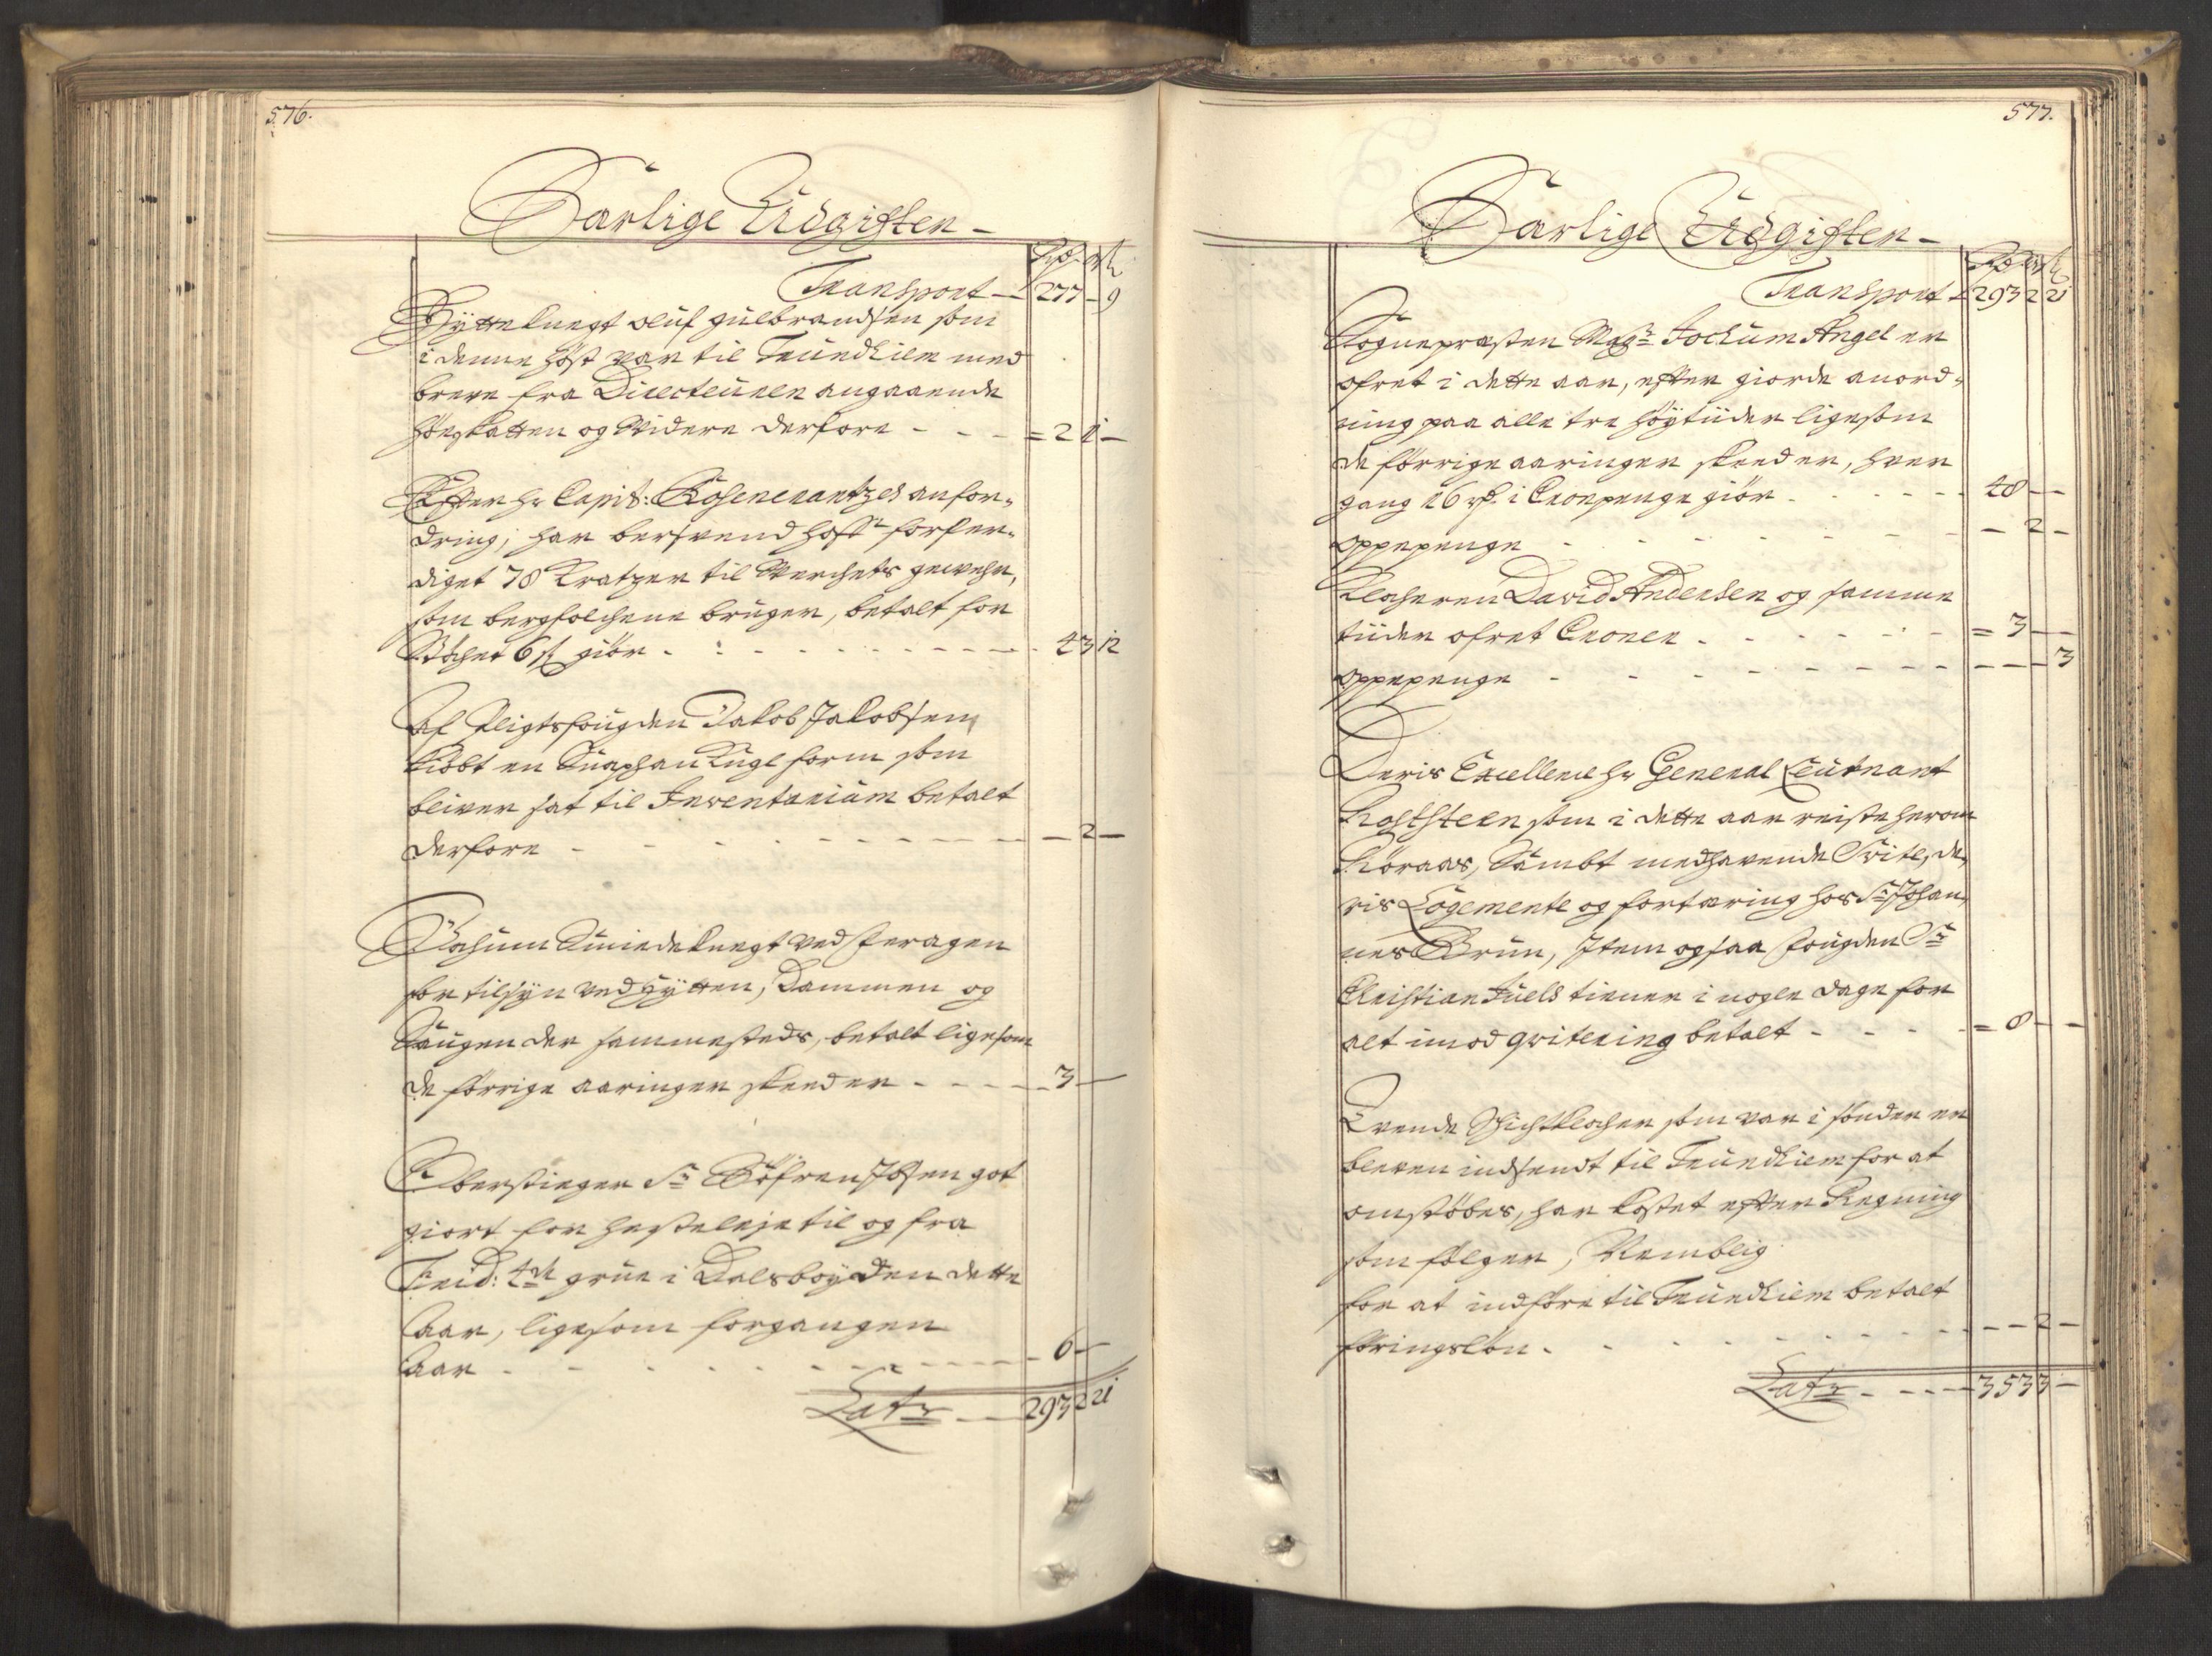 576.
Særlige Udgifter
Rdr ort ß
Transport 277 - 9
Hytteknegt Oluf Gulbrandsen som
i denne høst var til Trundhiem med
breve fra Directeuren angaaende
Høeskatten og Videre derfore - - = 2 1 -
Efter Hr Capit: Rosencrantzes anfor¬
dring, har bersvend forfer¬
diget 78 Kratzer til Verchets gewehr,
som bergfolchene bruger, betalt for
Støchet 6 ß giør - - - 4 3 12
Af Pligtsfougden Jakob Jakobsen
kiøbt en Knaphan Kugl form som
bliver sat til Inventarium betalt
derfore - - - 2 -
Jochum Smiedeknegt ved Feragen
for tilsyn ved Hytten, Dammen og
Saugen der sammesteds, betalt ligesom
de forrige aaringer skeed er - - - 3 -
Oberstieger Sr Søfren Ibsen got
giort for hesteleje til og fra
Frid: 4de grue i Dalsbøyden dette
Aar, ligesom forgangen
Aar - - - 6 -
Lat: - - 293 2 21
577.
Særlige Udgifter
Rdr ort ß
Transport 293 2 21
Sognepræsten Magr Jochum Angel er
ofret i dette aar, efter giorde anord¬
ning paa alle tre høytiider ligesom
de forrige aaringer skeed er, hver
gang 16 rd. i Cronpenge giør - - - 48 - -
oppepenge - - - 2 -
Klocheren David Andersen og samme
tiider ofret Croner - - - = 3 - -
oppepenge - - - 3
Deris Excellence Hr General Leutnant
som i dette aar reiste herom
Røraas, Sambt medhavende Svite, de¬
ris Logemente og fortæring hos Sr Johan¬
nes Brun, Item og saa fougden Sr
Christian Juels tiener i nogle dage for
alt imod qvitering betalt - - - = 8 - -
Tvende Schichtklocher som var i sønder er
bleven indsendt til Trundhiem for at
omstøbes, har kostet efter Regning
som følger, Nemblig
for at indføre til Trundhiem betalt
føringsløn - - - 2 -
Lat: - - - 353 3 -